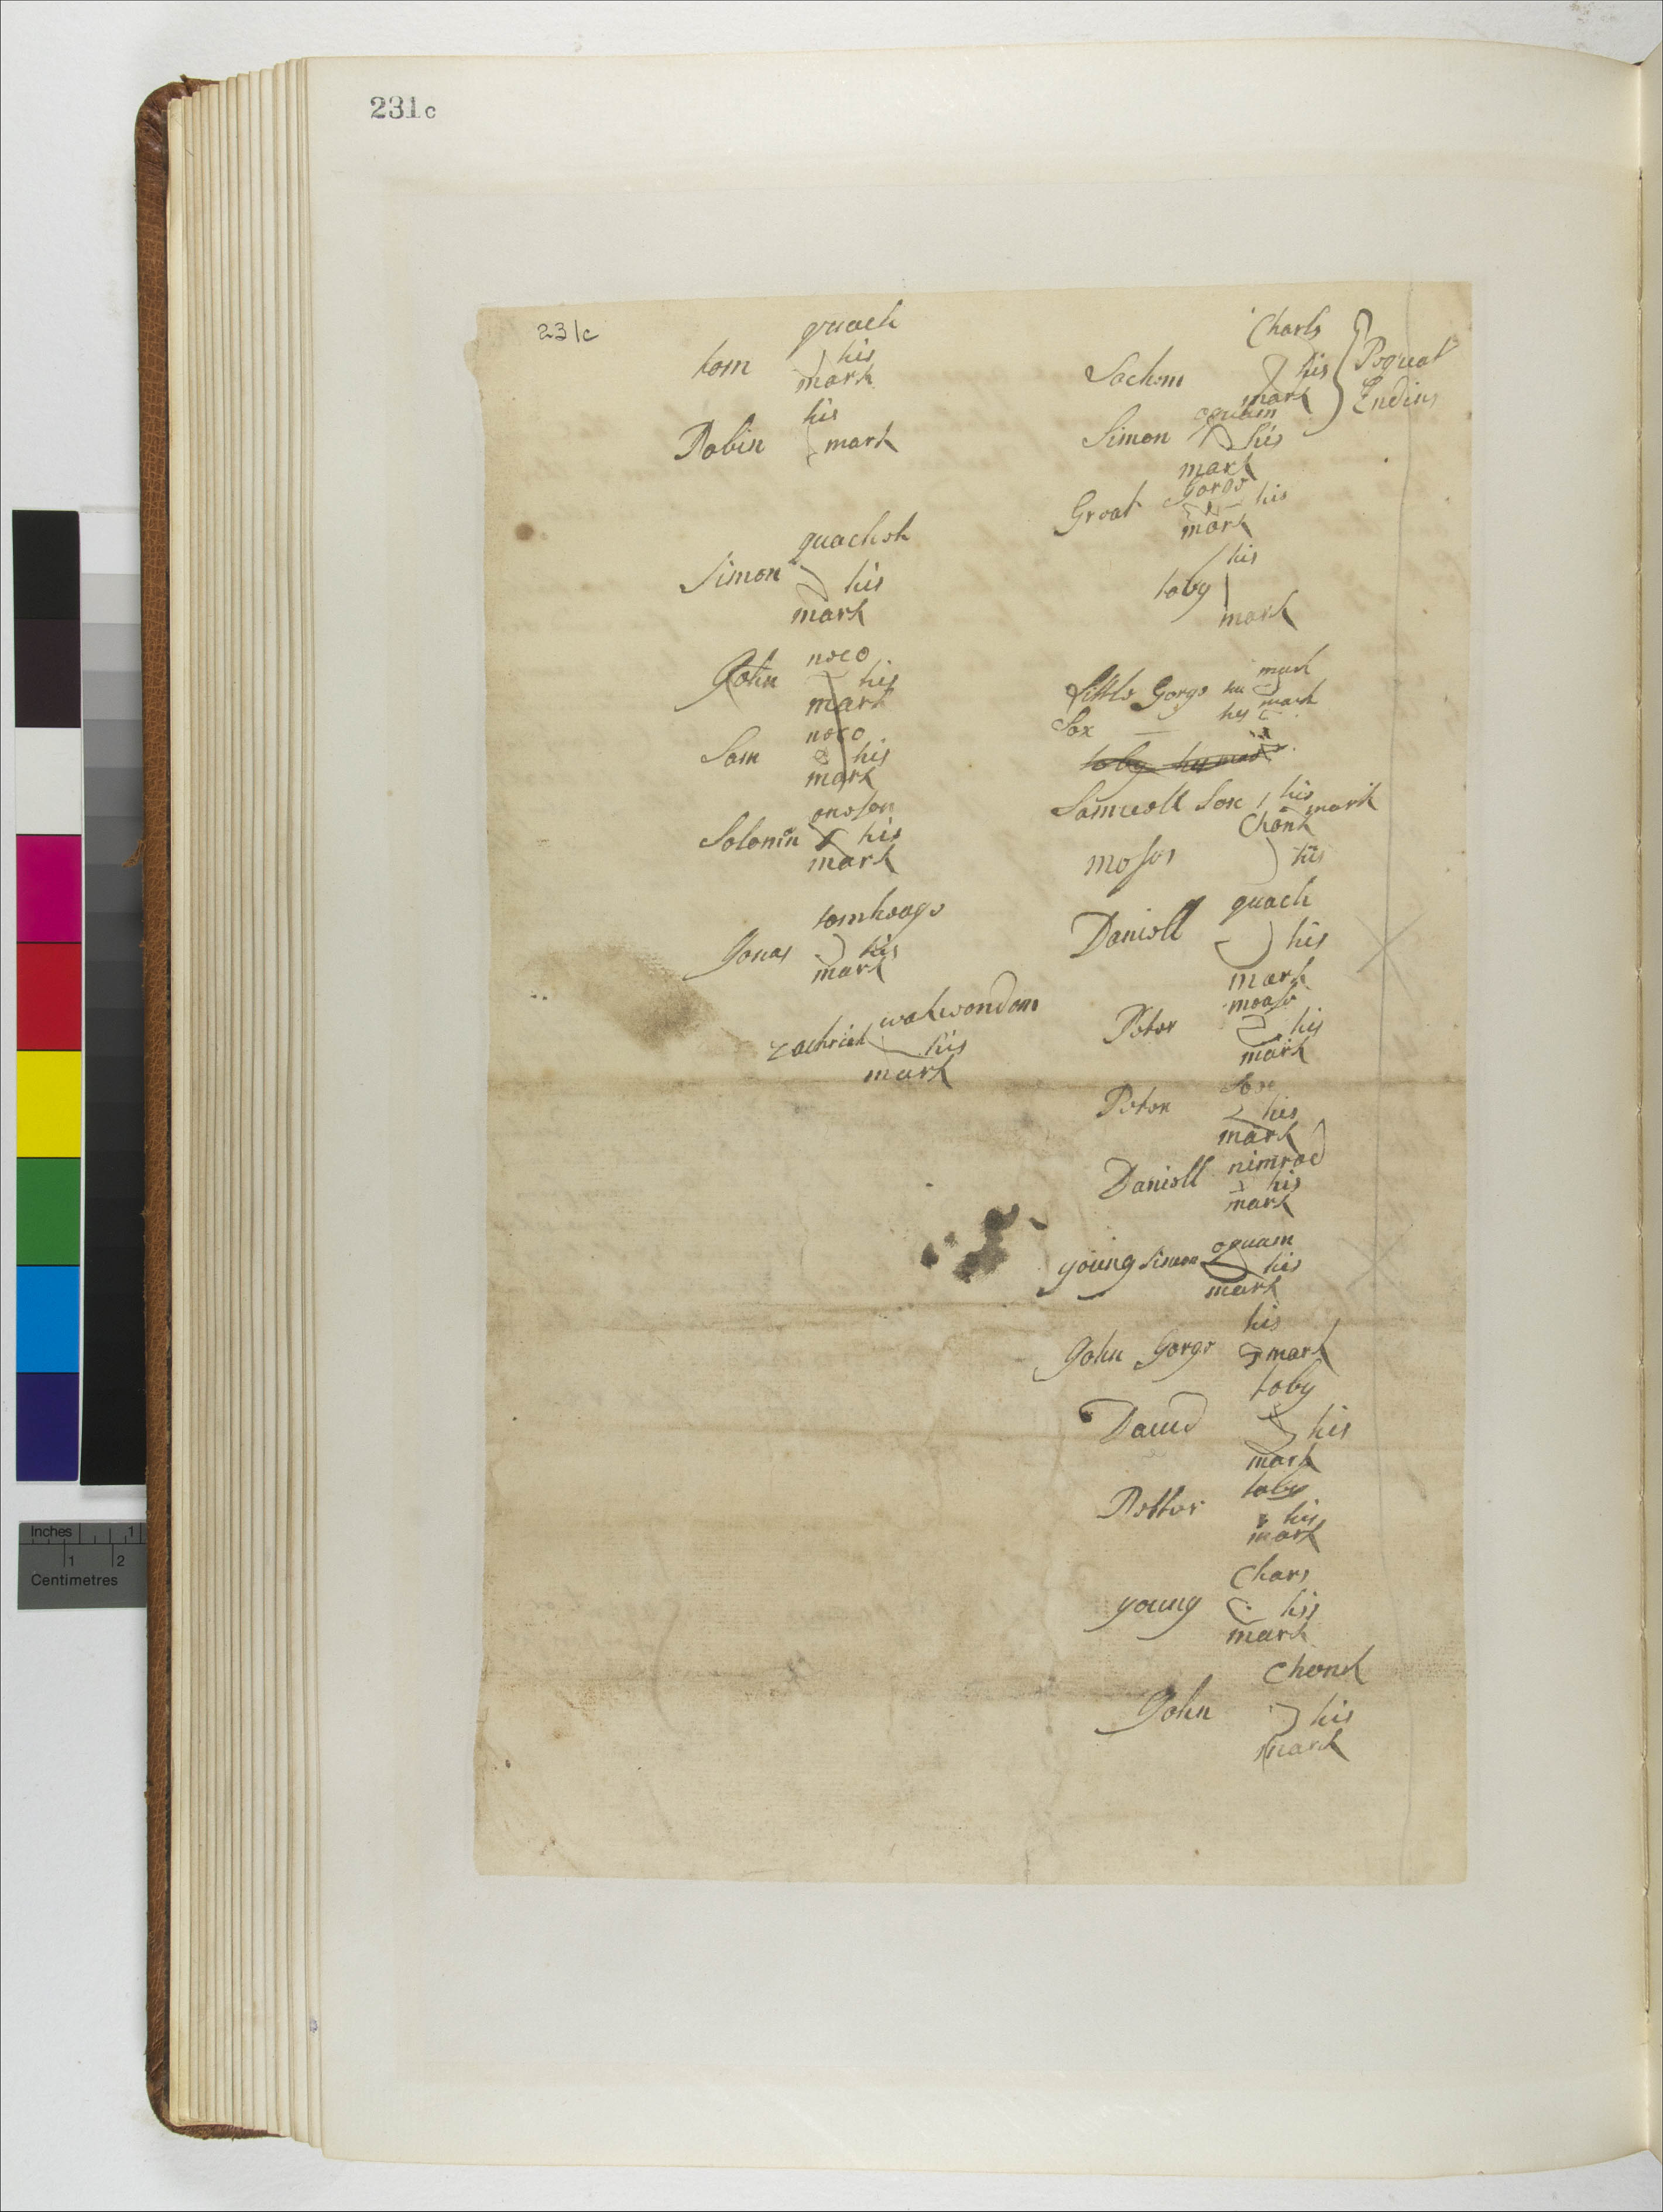 231c
231c
quach
tom his
mark
his
Robin mark
quacheh
Simon his
mark
noco
John his
mark
noco
Sam his
mark
Solomon his
mark
Jonas his
mark
wawondom
zachriah his
mark
Charls
Sachem his
mark
Pequat
Endins
oquam
Simon his
mark
Gorge
Great his
mark
his
toby
mark
Little Gorge his mark
Sox his mark
toby his mark
Samuell Sox his mark
Chonk
moses his
quach
Daniell his
mark
Peter his
mark
Sox
Peter his
mark
nimrod
Daniell his
mark
oquam
young Simon his
mark
his
John Gorge mark
toby
Daued his
mark
toby
Petter his
mark
Chars
young his
mark
Chonk
John his
mark
Inches 1
1 2
Centimetres